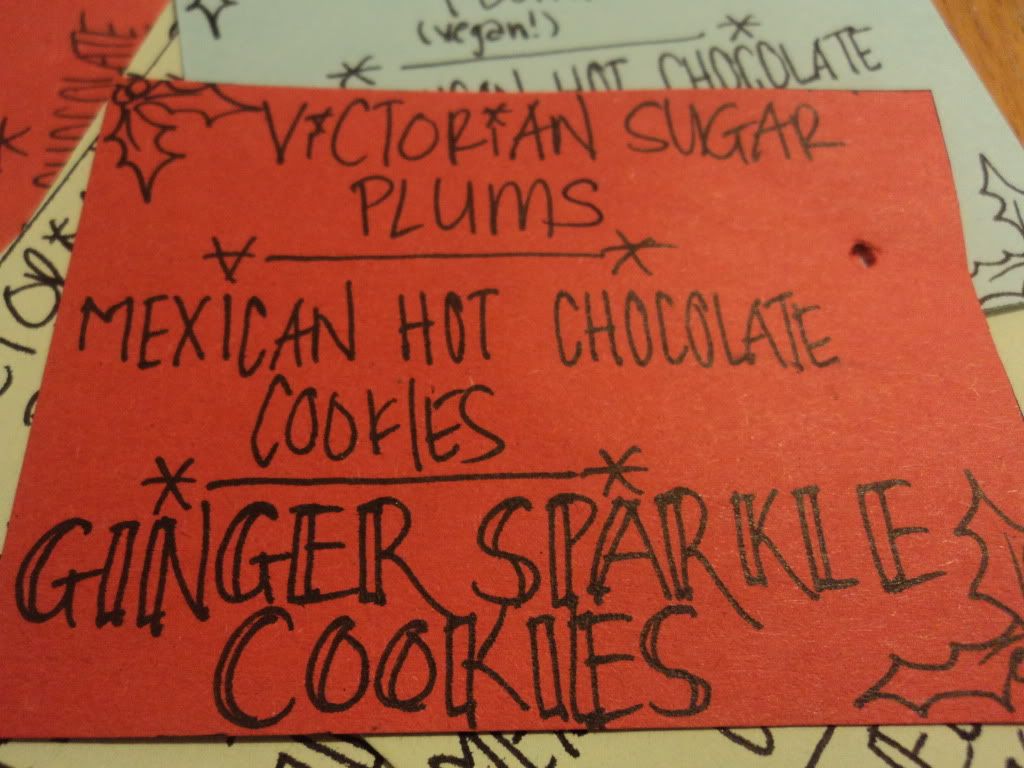 (vegan!)
HOT CHOCOLATE
CHOCOLATE
VICTORIAN SUGAR
PLUMS
MEXICAN HOT CHOCOLATE
COOKIES
GINGER SPARKLE
COOKIES